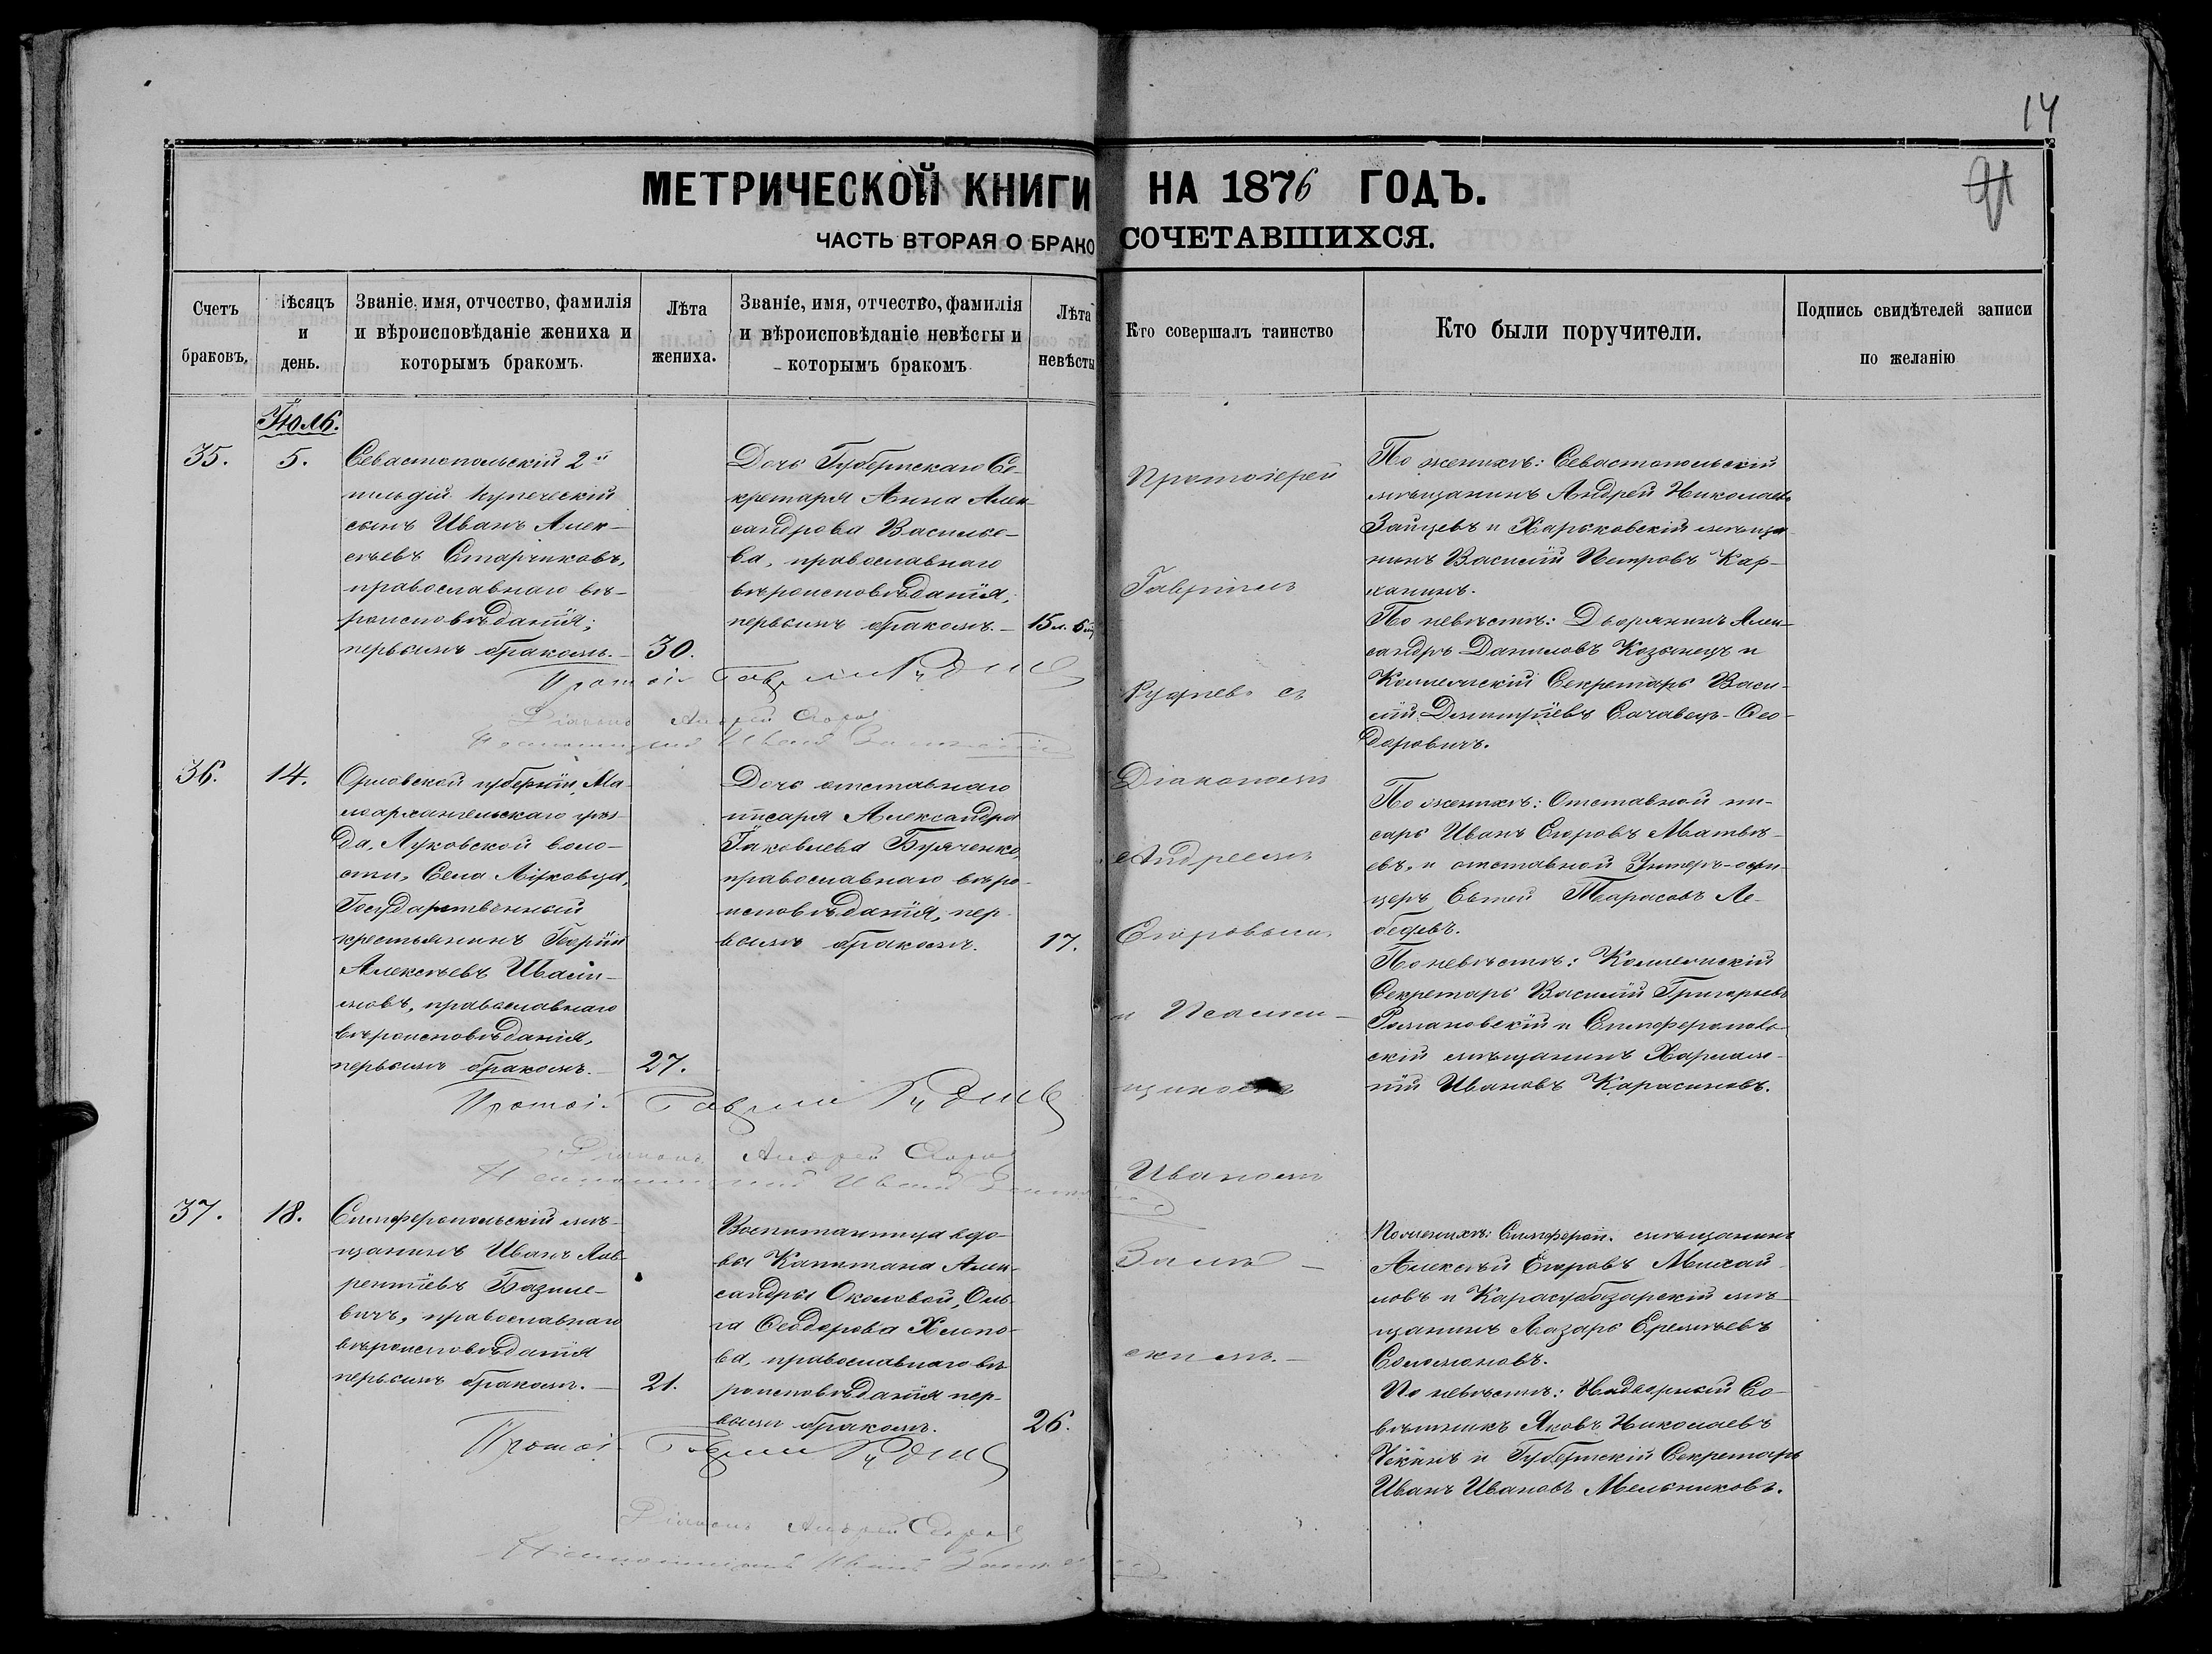 14
91
МЕТРИЧЕСКОЙ КНИГИ НА 1876 ГОДЪ.
ЧАСТЬ ВТОРАЯ О БРАКОСОЧЕТАВШИХСЯ.
Счетъ браковъ.
Мѣсяцъ и день.
Званіе, имя, отчество, фамилія
и вѣроисповѣданіе жениха и
которымъ бракомъ.
Лѣта
жениха.
Званіе, имя, отчество, фамилія
и вѣроисповѣданіе невѣсты и
которымъ бракомъ
Лѣта
невѣсты
Кто совершалъ таинство
Кто были поручители.
Подпись свидѣтелей записи
по желанію
Іюль.
35.
5.
Севастопольскій 2й
гильдіи купеческій
сынъ Иванъ Алек-
сѣевъ Старчиковъ,
православнаго вѣ-
роисповѣданія;
первымъ бракомъ.-
30.
Дочь Губернскаго Се-
кретаря Анна Алек-
сандрова Василье-
ва, православнаго
вѣроисповѣданія,
первымъ бракомъ.-
15 л. 6 м.
Протоіерей
Гавріилъ
Рудневъ съ
Діакономъ
Андреемъ
Егоровымъ
и Псалом-
щикомъ
Иваномъ
Залѣ-
скимъ.-
По женихѣ: Севастопольскій
мѣщанинъ Андрей Николаевъ
Зайцевъ и Харьковскій мѣща-
нинъ Василій Петровъ Кар-
ханинъ.
По невѣстѣ: Дворянинъ Алек-
сандръ Даниловъ Козынецъ и
Коллежскій Секретарь Васи-
лій Димитріевъ Сачавецъ-Ѳео-
доровичъ.
Протоі. Гавріилъ Рудневъ
Діаконъ Андрей Егоровъ
Псаломщикъ Иванъ
36.
14.
Орловской губерніи, Ма-
лоархангельскаго уѣз-
да, Луковской воло-
сти, Села Лѣсковца,
Государственный
крестьянинъ
Алексѣевъ
православнаго
вѣроисповѣданія,
первымъ бракомъ.-
27.
Дочь отставнаго
писаря Александра
Іаковлева Буряченко,
православнаго вѣро-
исповѣданія, пер-
вымъ бракомъ.
17.
По женихѣ: Отставной пи-
сарь Иванъ Егоровъ Матвѣ-
евъ, и отставной Унтеръ-офи-
церъ Евтей Тарасовъ Ле-
бедевъ.
По невѣстѣ: Коллежскій
Секретарь Василій Григорьевъ
Романовскій и Симферополь-
скій мѣщанинъ Харлам-
пій Ивановъ Карасиновъ.
Протоі. Гавріилъ Рудневъ
Діаконъ Андрей Егоровъ
Псаломщикъ Иванъ
37.
18.
Симферопольскій мѣ-
щанинъ Иванъ Лав-
рентіевъ Базиле-
вичъ, православнаго
вѣроисповѣданія
первымъ бракомъ.-
21.
Воспитанница вдо-
вы Капитана Алек-
сандры Околовой, Оль-
га Ѳеодорова Хлопо-
ва, православнаго вѣ-
роисповѣданія пер-
вымъ бракомъ.
26.
По женихѣ: Симфероп. мѣщанинъ
Алексѣй Егоровъ Михай-
ловъ и Карасубазарскій мѣ-
щанинъ Лазарь Еремѣевъ
Соломоновъ.
По невѣстѣ: Надворный Со-
вѣтникъ Яковъ Николаевъ
Чекинъ и Губернскій Секретарь
Иванъ Ивановъ Мельниковъ.
Протоі. Гавріилъ Рудневъ
Діаконъ Андрей Егоровъ
Псаломщикъ Иванъ